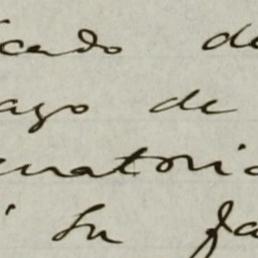 icado de
ago de
enatoria
i su fa